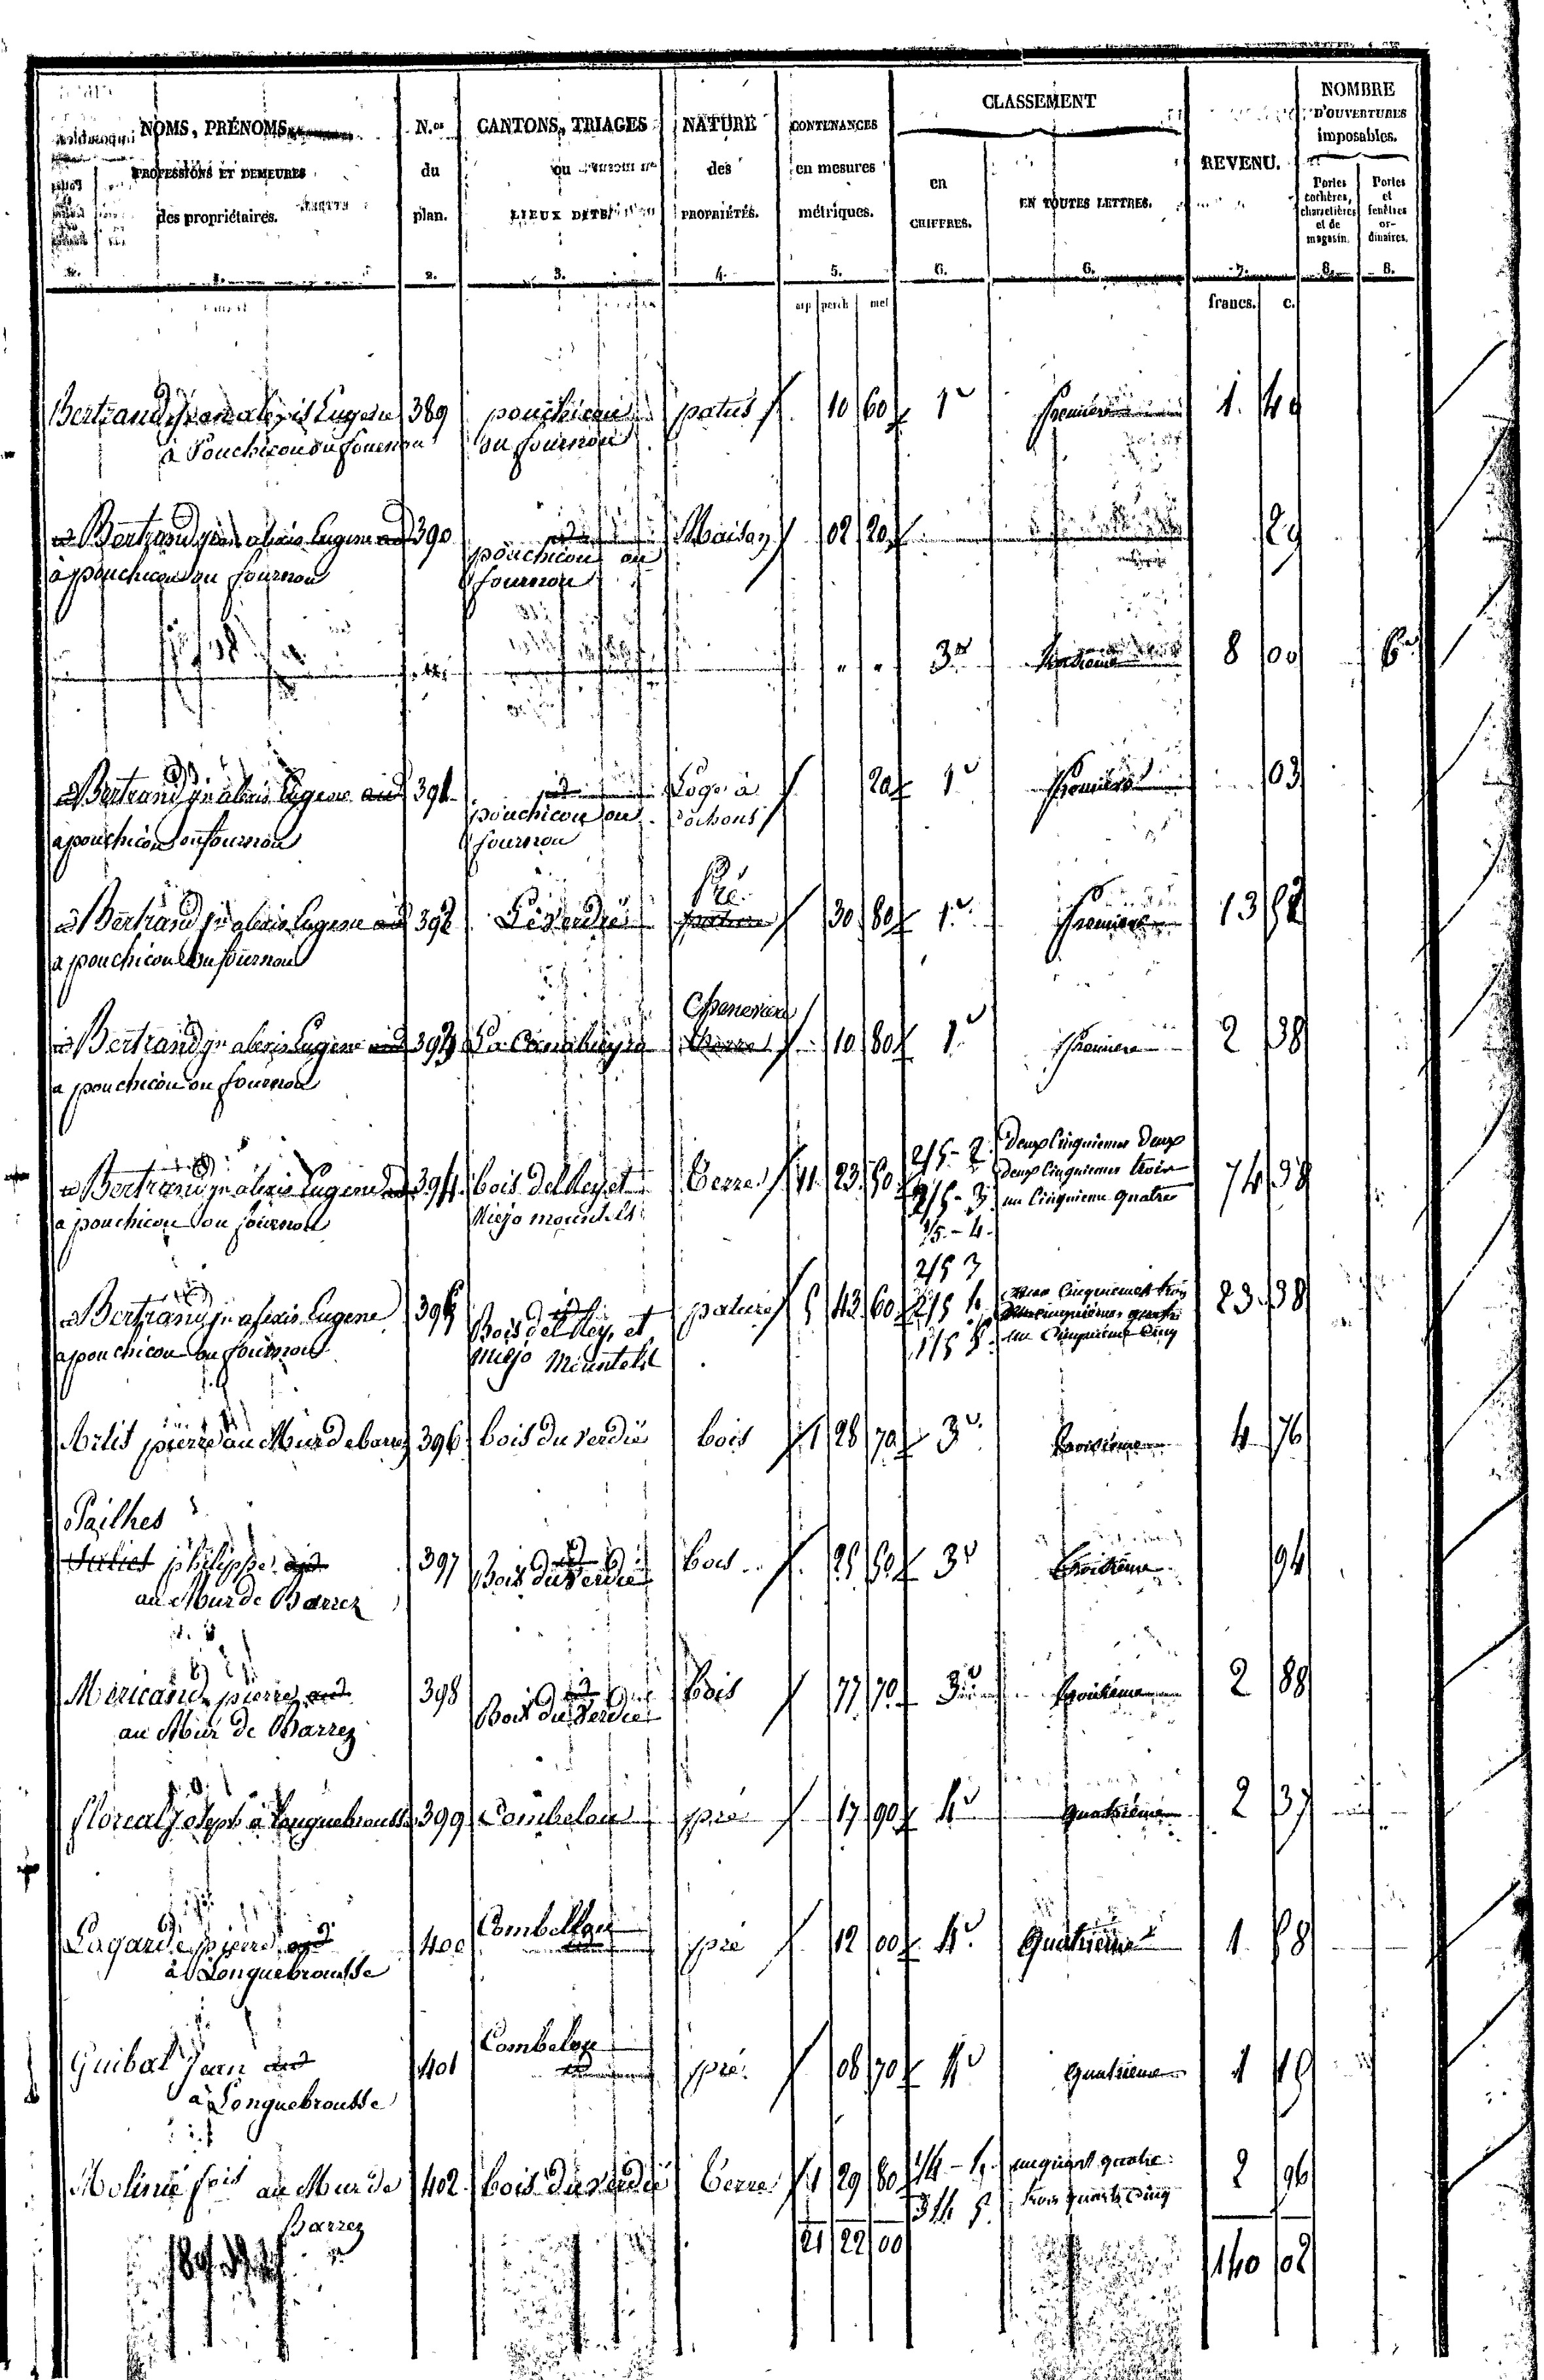 NOMS, PRÉNOMS, PROFESSIONS ET DEMEURES des propriétaires. | N.os du plan. | CANTONS, TRIAGES ou LIEUX DITS | NATURE des PROPRIÉTÉS. | CONTENANCES en mesures métriques. | CLASSEMENT en CHIFFRES. | EN TOUTES LETTRES. | REVENU. | NOMBRE D'OUVERTURES imposables. Portes cochères, charretières et de magasin. | Portes et fenêtres ordinaires.
1. 2. 3. 4. 5. 6. 6. 7. 8. 8.
arp perch met francs. c.
Bertrand jean alexis Eugene 389 pouchicou patus 10 60 1e Premiere 1. 40
à Pouchicou ou fournou ou fournou
Bertrand jn alexis Eugene 390 id Maison 02 20
à pouchicou ou fournou pouchicou ou
fournou
3e troisieme 8 00 6
Bertrand jn alexis Eugene 391 id Loge à 20 1e Premiere 03
a pouchicou ou fournou pouchicou ou cochons
fournou
Pré
Bertrand jn alexis Eugene 392 30 80 1e Premiere 13
a pouchicou ou fournou
Bertrand jn alexis Eugene 393 10 80 1e Premiere 2 38
a pouchicou ou fournou
2/5 - 2. Deux Cinquiemes Deux
Bertrand jn alexis Eugene 394 bois del Rey et Terre 11 23 2/5 - 3. deux Cinquiemes trois 74 38
a pouchicou ou fournou Miejo mountels 1/5 - 4. un Cinquieme quatre
2/5 3
Bertrand jn alexis Eugene 395 id pature 5 43 60 2/5 4 Cinquiemes trois 23 38
a pouchicou ou fournou Bois del Rey et 1/5 5 Cinquiemes quatre
miejo Mountels un Cinquieme Cinq
pierre au Mur de barrez 396 bois du verdié bois 1 28 70 3e troisieme 4 76
Pailhes
philippe id 397 Bois du Verdié bois 25 50 3e troisieme 94
au Mur de Barrez
pierre id 398 id bois 77 70 3e troisieme 2 88
au Mur de Barrez Bois du Verdié
floreal joseph à Longuebrousse 399 Combelou pré 17 90 4e quatrieme 2 37
Lagarde pierre id 400 Combelou pré 12 00 4e Quatrieme 1. 58
à Longuebrousse
Guibal Jean id 401 Combelou pré 08 70 4e quatrieme 1
à Longuebrousse
Molinié fcois au Mur de 402 bois du verdié Terre 1 29 80 1/4 - 4. un quart quatre 2 96
Barrez 3/4 5. trois quarts Cinq
21 22 00 140 02